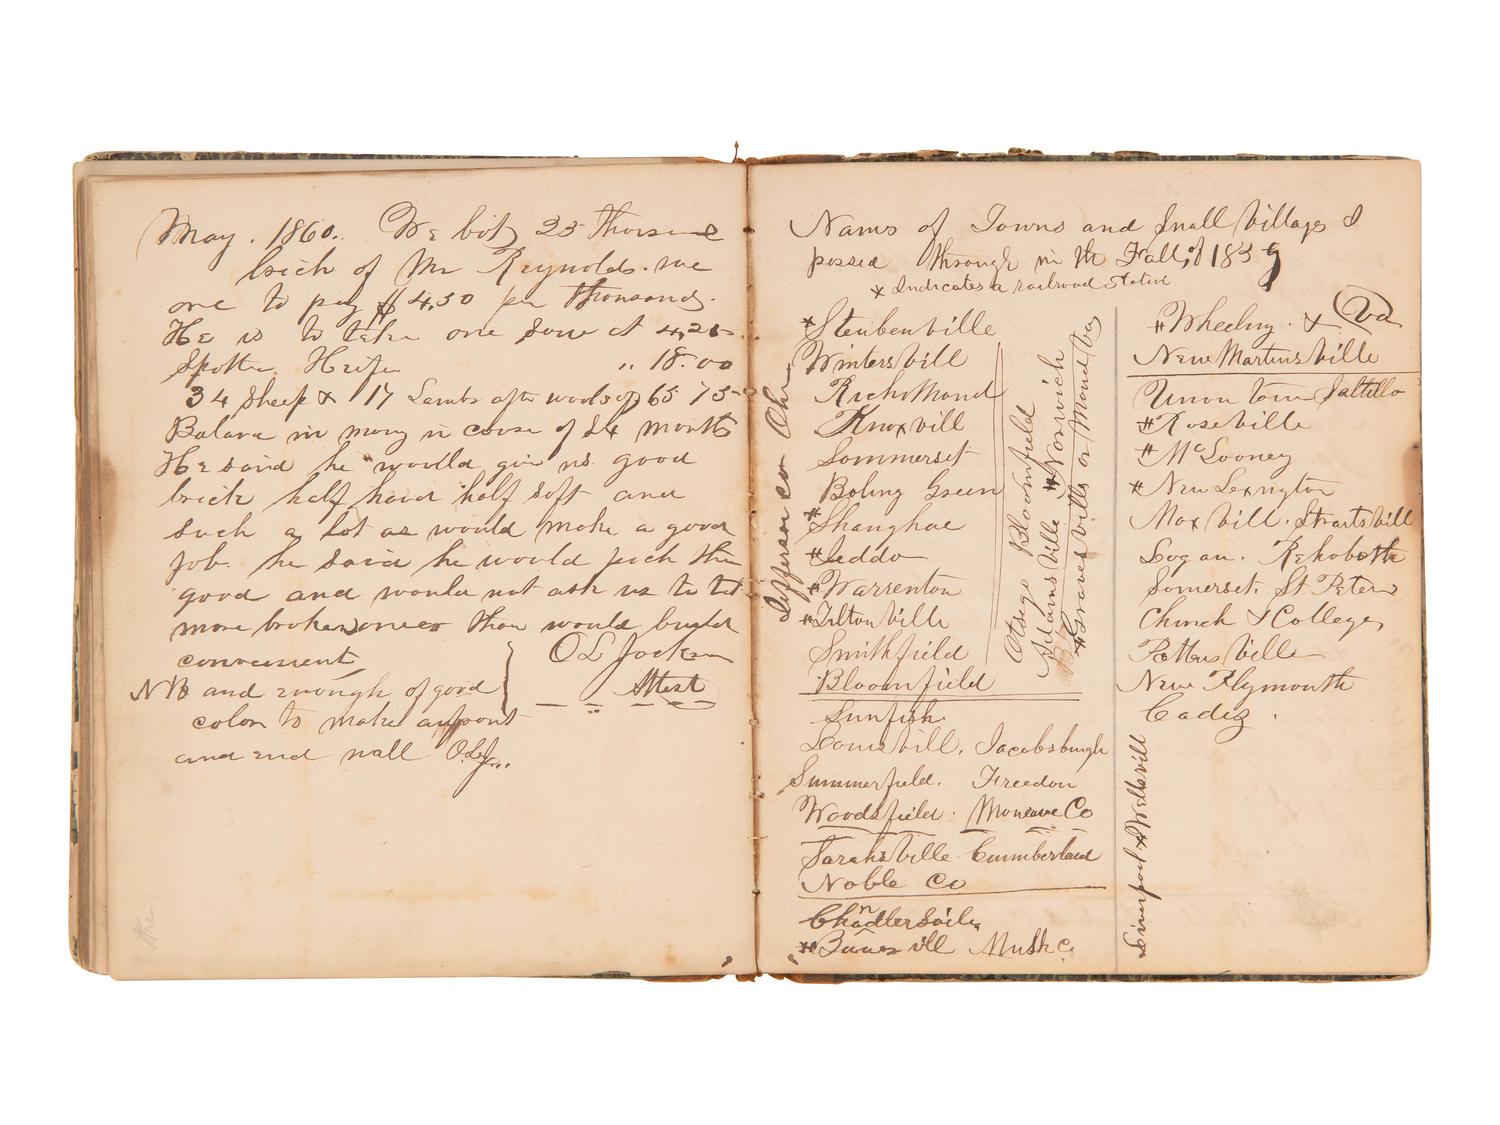 May. 1860. We bot 25 thousand
brick of Mr Reynolds. we
are to pay $4.50 per thousand.
He is to take one sow at 4,25
Spotted Heifer " 18.00
34 Sheep & 17 Lambs after wool is off 65 75
Balance in mony in corse of 24 months
He said he would give us good
brick half hard half soft and
such a lot as would make a good
job. he said he would pick them
good and would not ask us to take
more broken ones than would build
convenient
O L Jackson
N B and enough of good
Attest
color to make a front
and end wall O.L.J.
Nams of Towns and Small Villages I
passed through in the Fall of 1859
* Indicates a railroad station
Jefferson Co Ohio
*Steubenville
Wintersvill
Richmond
Knoxvill
Sommerset
Boling Green
*Shanghae
*Jeddo
*Warrenton
*Tiltonville
Smithfield
Bloomfield
Otsego Bloomfield
Adamsville *Norwich
Sunfish
Louisvill. Jacobsburgh
Summerfield. Freedon
Woodsfield. Monroe Co
Sarahsville Cummberland
Noble Co
Chandlersville
Musk C.
*Wheeling. & Va
New Martinsville
Union town Saltillo
*Roseville
*McLooney
*New Lexington
Moxvill. Straitsvill
Logan. Rehoboth
Somerset. St Peters
Church & College
Pottersville
New Plymouth
Cadiz.
Liverpool *Wellsvill